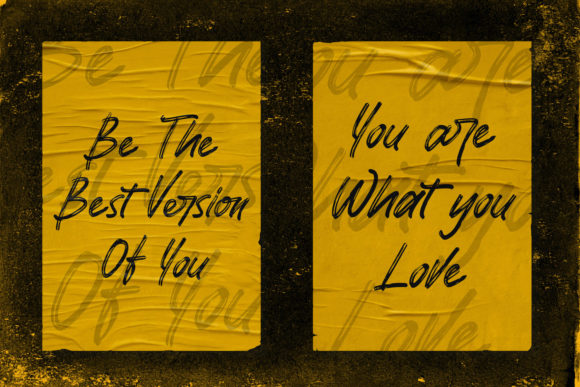 Be The
Best Version
Of You
You are
What you
Love